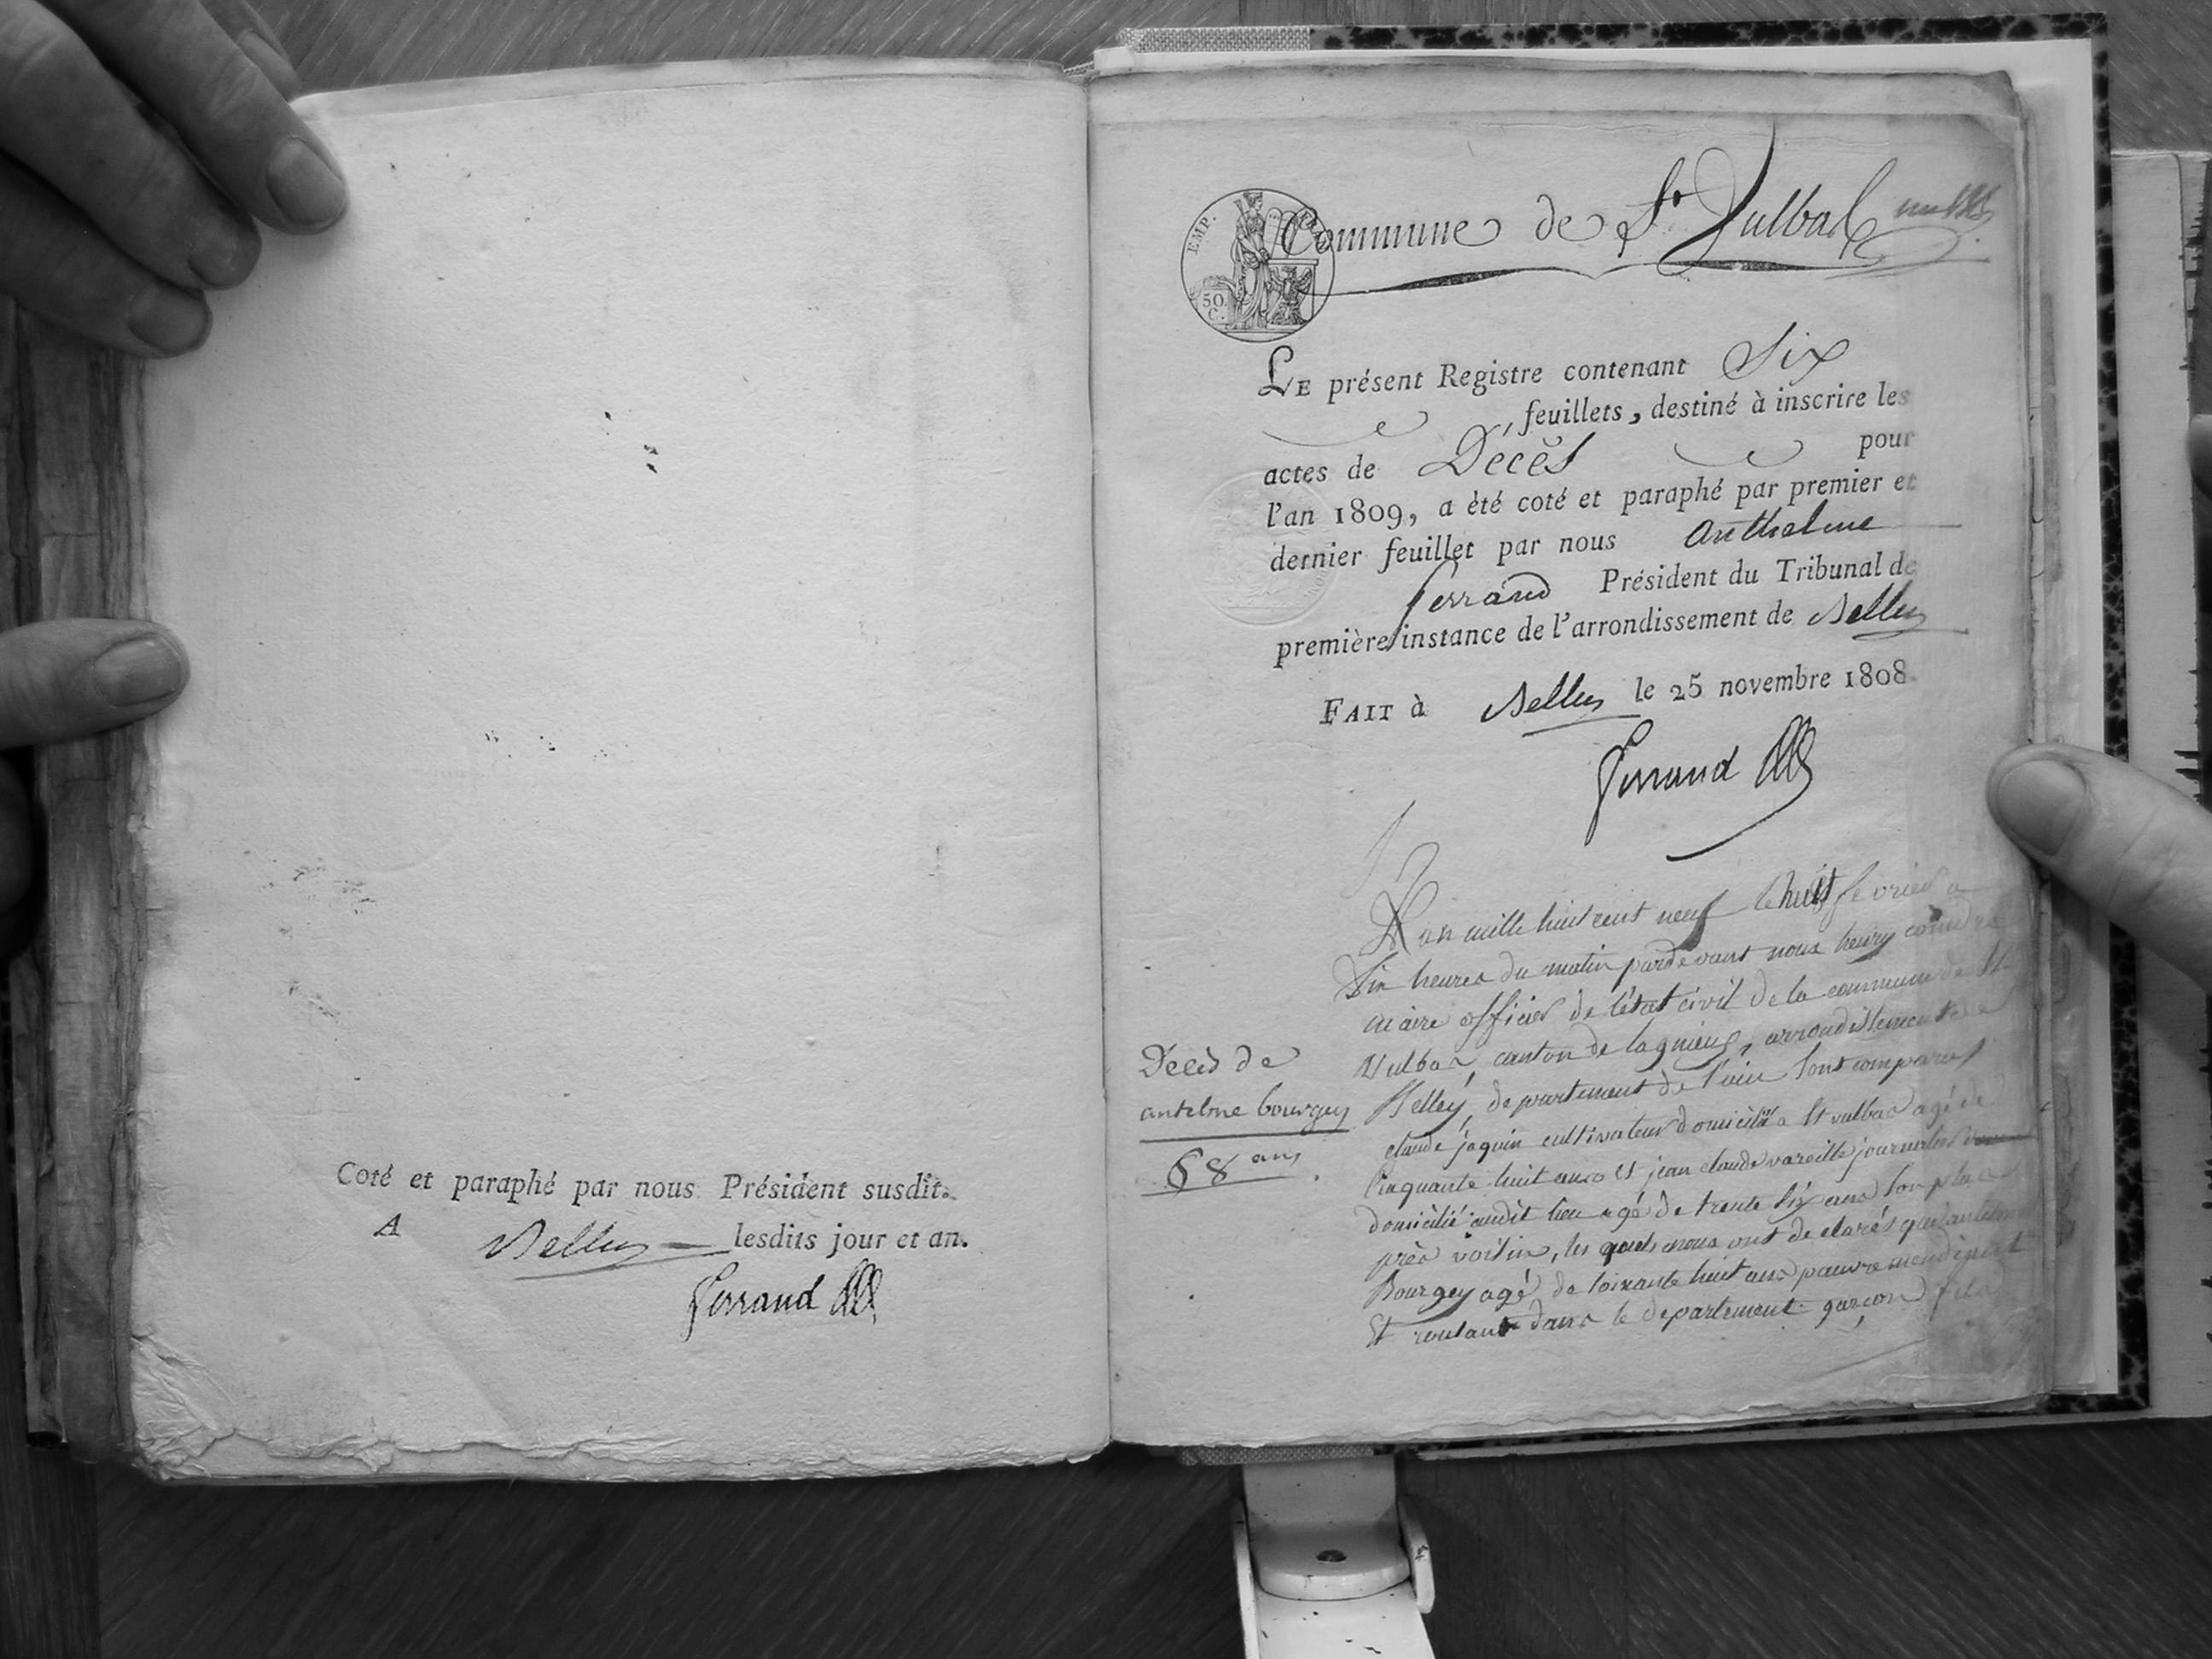 Coté et paraphé par nous Président susdit.
A Belley lesdits jour et an.
Ferrand
EMP.
50.
C.
Commune de St Vulbas
LE présent Registre contenant Six
feuillets, destiné à inscrire les
actes de Décès pour
l'an 1809, a été coté et paraphé par premier et
dernier feuillet par nous anthelme
ferrand Président du Tribunal de
première instance de l'arrondissement de Belley
FAIT à Belley le 25 novembre 1808.
Ferrand
L'an mille huit cent neuf le huit fevrier a
Six heures du matin pardevant nous henry
maire officier de l'état civil de la commune de St
Vulbas, canton de lagnieu, arrondissement de
Belley, departement de l'ain sont comparus
claude jaquin cultivateur domicilié a St vulbas agé de
Cinquante huit ans et jean claude vareille journalier
domicilié audit lieu agé de trente six ans son plus
près voisin, les quels nous ont declarés que antelme
Bourgey agé de soixante huit ans pauvre mendiant
Et roulant dans le departement garçon fils
Décès de
antelme bourgey
68 ans